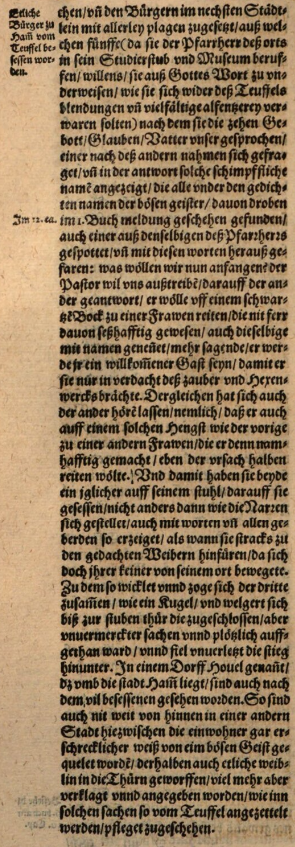 Etliche
Bürger zu
Ham̃ vom
Teuffel be-
sessen wor-
den.
chen/vñ den Bürgern im nechsten Städt-
lein mit allerley plagen zugesetzt/auß wel-
chen fünffe(da sie der Pfarrherr deß orts
in sein Studierstub vnd Museum beruf-
fen/willens/sie auß Gottes Wort zu vn-
derweisen/wie sie sich wider deß Teuffels
blendungen vñ vielfältige alfentzerey ver-
waren solten) nach dem sie die zehen Ge-
bott/Glauben/Vatter vnser gesprochen/
einer nach deß andern nahmen sich gefra-
get/vñ in der antwort solche schimpffliche
namẽ angezeigt/die alle vnder den gedich-
ten namen der bösen geister/dauon droben
Im 12. ca.
im 1. Buch meldung geschehen gefunden/
auch einer auß denselbigen deß Pfarrherrs
gespottet/vñ mit diesen worten herauß ge-
faren: was wöllen wir nun anfangenẽ der
Pastor wil vns außtreibẽ/darauff der an-
der geantwort/er wölle vff einem schwar-
tzẽ Bock zu einer Frawen reiten/die nit ferr
dauon seßhafftig gewesen/auch dieselbige
mit namen geneñet/mehr sagende/er wer-
de jr ein willkom̃ener Gast seyn/damit er
sie nur in verdacht deß zauber vnd Hexen-
wercks brächte. Dergleichen hat sich auch
der ander hörẽ lassen/nemlich/daß er auch
auff einem solchen Hengst wie der vorige
zu einer andern Frawen/die er denn nam-
hafftig gemacht/eben der vrsach halben
reiten wölte. Vnd damit haben sie beyde
ein jglicher auff seinem stuhl/darauff sie
gesessen/nicht anders dann wie die Narren
sich gestellet/auch mit worten vñ allen ge-
berden so erzeiget/als wann sie stracks zu
den gedachten Weibern hinfüren/da sich
doch jhrer keiner von seinem ort bewegete.
Zu dem so wicklet vnnd zoge sich der dritte
zusam̃en/wie ein Kugel/vnd welgert sich
biß zur stuben thür die zugeschlossen/aber
vnuermerckter sachen vnnd plötzlich auff-
gethan ward/vnnd fiel vnuerletzt die stieg
hinunter. In einem Dorff Houel genañt/
dz vmb die stadt Ham̃ liegt/sind auch nach
dem/vil besessenen gesehen worden. So sind
auch nit weit von hinnen in einer andern
Stadt hiezwischen die einwohner gar er-
schrecklicher weiß von ein bösen Geist ge-
quelet wordẽ/derhalben auch etliche weib-
lin in die Thürn geworffen/viel mehr aber
verklagt vnnd angegeben worden/wie inn
solchen sachen so vom Teuffel angezettelt
werden/pfleget zugeschehen.